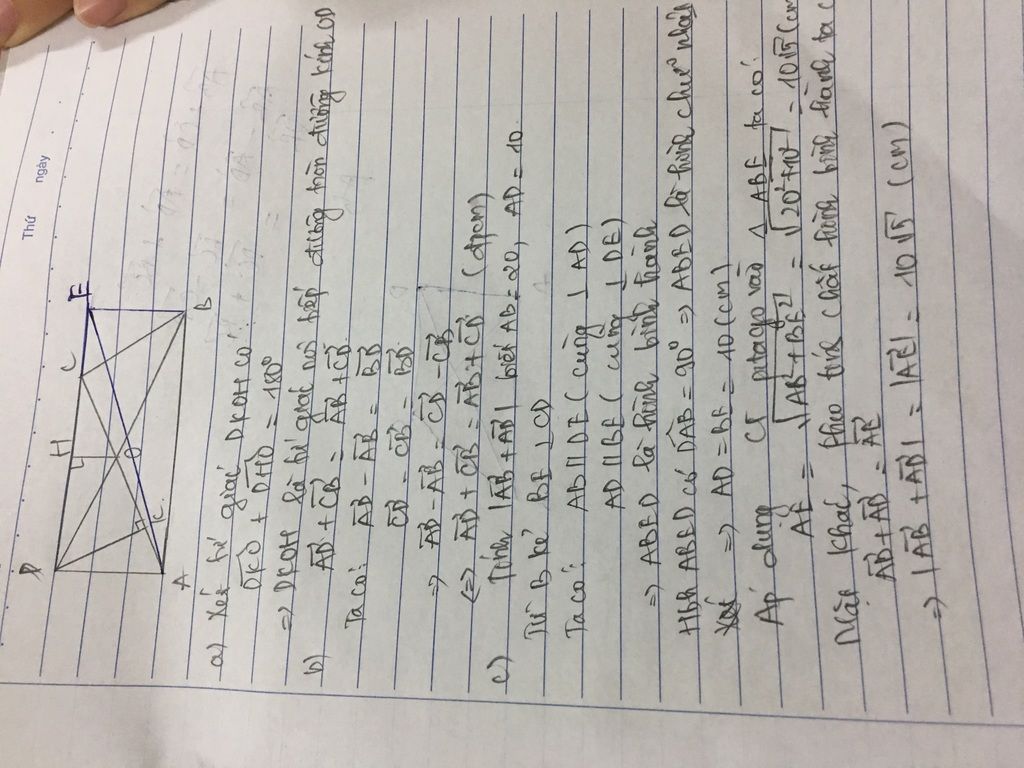 Thứ ngày
D H C E
O
K
A B
a) Xét tứ giác DKOH có:
D̂KO + D̂HO = 180°
=> DKOH là tứ giác nội tiếp đường tròn đường kính OD
b) AD⃗ + CB⃗ = AB⃗ + CD⃗
Ta có: AD⃗ - AB⃗ = BD⃗
CD⃗ - CB⃗ = BD⃗
=> AD⃗ - AB⃗ = CD⃗ - CB⃗
<=> AD⃗ + CB⃗ = AB⃗ + CD⃗ (đpcm)
c) Tính |AB⃗ + AD⃗| biết AB = 20, AD = 10.
Từ B kẻ BE ⊥ CD
Ta có: AB // DE (cùng ⊥ AD)
AD // BE (cùng ⊥ DE)
=> ABED là hình bình hành
Hbh ABED có D̂AB = 90° => ABED là hình chữ nhật
=> AD = BE = 10 (cm)
Áp dụng Cl pitago vào Δ ABE ta có:
AE = √AB² + BE² = √20² + 10² = 10√5 (cm
Mặt khác, theo tính chất hình bình hành ta c
AB⃗ + AD⃗ = AE⃗
=> |AB⃗ + AD⃗| = |AE⃗| = 10√5 (cm)